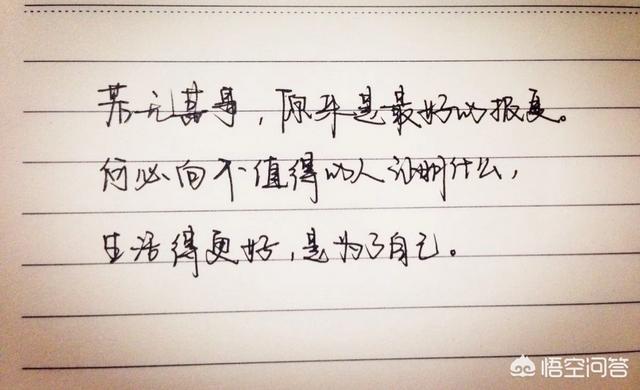 若无其事，原来是最好的报复。
何必向不值得的人证明什么，
生活得更好，是为了自己。
悟空问答